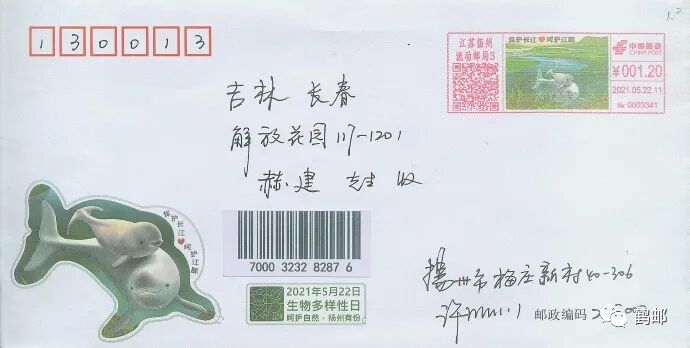 130013
江苏扬州
流动邮局3
保护长江❤呵护江豚
中国邮政
CHINA POST
¥001.20
2021.05.22.11
№:0003341
吉林 长春
解放花园117-1201
赫建 先生 收
保护长江❤呵护江豚
7000 3232 8287 6
2021年5月22日
生物多样性日
呵护自然·扬州有份
扬州市梅庄新村40-306
许
邮政编码
鹤邮